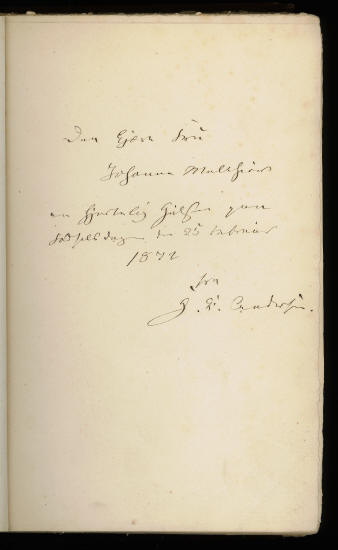 Den kjære Fru
Johanne Melchior
en hjertelig Hilsen paa
Fødselsdagen den 25 Februar
1872
fra
H. C. Andersen.